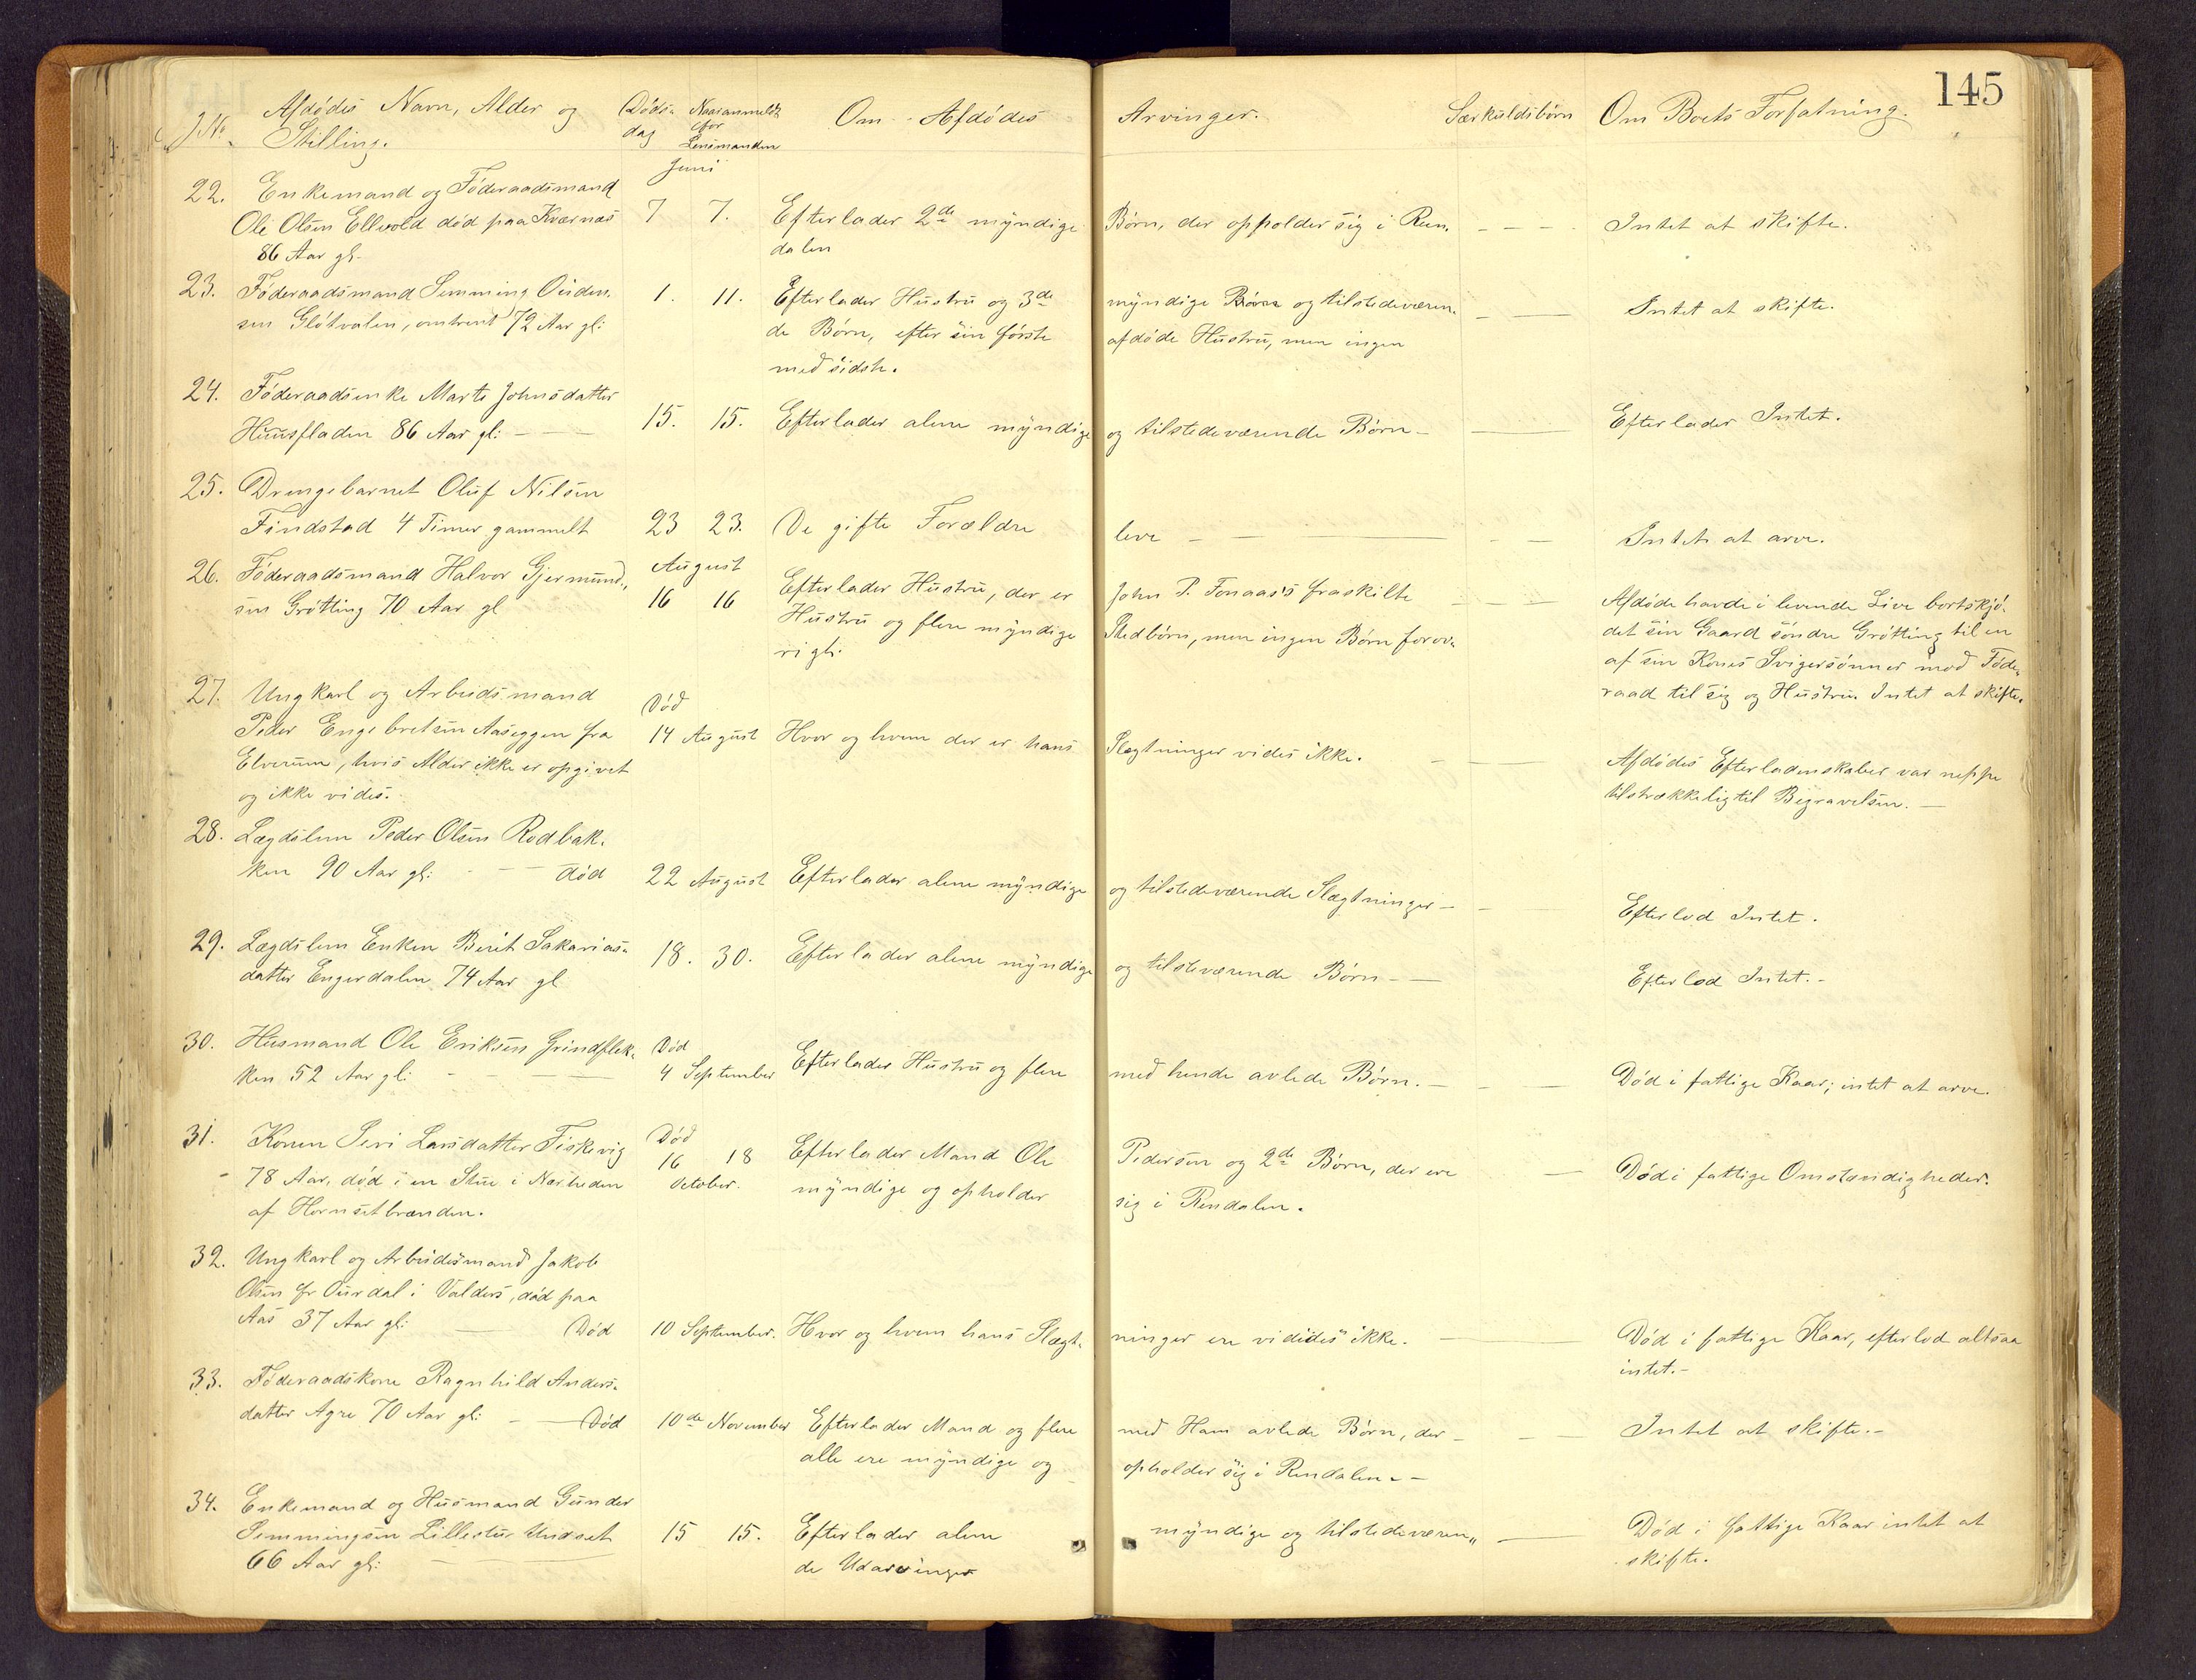 145
J No. Afdødes Navn, Alder og Stilling. Dødsdag Naar anmeldt for Lensmanden Om Afdødes Arvinger. Særkuldsbørn Om Boets Forfatning.
Juni
22. Enkemand og Föderaadsmand
Ole Olsen Ellevold död paa Kværnæs 7 7. Efterlader 2de myndige Börn, der oppolder sig i Ren, - - - Intet at skifte.
86 Aar gl. dalen
23. Föderaadsmand Semming Ouden, 1. 11. Efterlader Hustru og 3de myndige Börn og tilstedeværen. - — Intet at skifte.
sen Glötvolen, omtrent 72 Aar gl: de Börn, efter sin förste afdöde Hustru, men ingen
med sidste.
24. Föderaadsenke Marte Johnsdatter
Huusfladen 86 Aar gl: - — 15. 15. Efterlader alene myndige og tilstedeværende Börn - — Efterlader Intet.
25. Drengebarnet Oluf Nilsen
Findstad 4 Timer gammelt 23 23. De gifte Forældre leve - — — - — Intet at arve.
26. Föderaadsmand Halvor Gjermund, August
sen Grötting 70 Aar gl 16 16 Efterlader Hustru, der er John P. Fonaas's fraskilte - — Afdöde havde i levende Live bortskjö-
Hustru og flere myndige Stedbörn, men ingen Börn forov- det sin Gaard söndre Grötting til en
rigt. af sin Kones Svigersönner mod Föde,
raad til sig og Hustru. Intet at skifte.
27. Ungkarl og Arbeidsmand Död
Peder Engebretsen Aaseggen fra 14 August Hvor og hvem der er hans Slegtninger vides ikke. - — Afdödes Efterladenskaber var neppe
Elverum, hvis Alder ikke er opgivet tilstrækkelig til Begravelsen. —
og ikke vides.
28. Lægdslem Peder Olsen Rodbak.
ken 90 Aar gl: - — död 22 August Efterlader alene myndige og tilstedeværende Slægtninger - — Efterlod Intet.
29. Lægdslem Enken Berit Sakarias-
datter Engerdalen 74 Aar gl 18. 30. Efterlader alene myndige og tilsteværende Börn - — Efterlod Intet. -
30. Husmand Ole Eriksen Grindflek, Död
ken 52 Aar gl: - — 4 September Efterlader Hustru og flere med hende avlede Börn. - — Död i fattige Kaar; intet at arve.
31. Konen Siri Larsdatter Fiskevig Död
- 78 Aar, död i en Stue i Nærheden 16 18 Efterlader Mand Ole Pedersen og 2de Börn, der ere — Död i fattige Omstændigheder.
af Hornsetbrænden. October. myndige og opholder sig i Rendalen.
32. Ungkarl og Arbeidsmand Jakob
Olsen fr Ourdal i Valders, död paa
Aas 37 Aar gl: — Död 10 September. Hvor og hvem hans Slægt, ninger ere vidides ikke. — Död i fattige Kaar, efterlod altsaa
intet. -
33. Föderaadskone Ragnhild Anders-
datter Agre 70 Aar gl: - — Död 10de November Efterlader Mand og flere med Ham avlede Börn, der - - — Intet at skifte. -
alle ere myndige og opholder sig i Rendalen. -
34. Enkemand og Husmand Gunder
Semmingsen Lillestue Undset 15 15. Efterlader alene myndige og tilstedeværen„ — Död i fattige Kaar intet at
66 Aar gl: — de Udarvinger skifte.